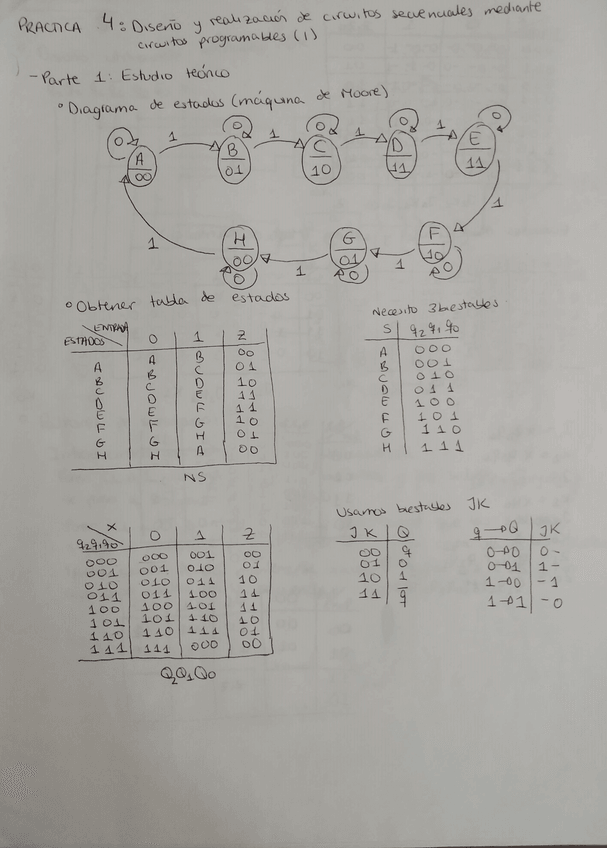 PRACTICA 4: Diseño y realización de circuitos secuenciales mediante
circuitos programables (1)
- Parte 1: Estudio teórico
° Diagrama de estados (máquina de Moore)
0 1 0 1 0 1 0 1 0
A 00 B 01 C 10 D 11 E 11
1
H 00 G 01 F 10
1 1 1
0 0 0
° Obtener tabla de estados
Necesito 3 biestables
ENTRADA
ESTADOS 0 1 Z
A A B 00
B B C 01
C C D 10
D D E 11
E E F 11
F F G 10
G G H 01
H H A 00
NS
S q2 q1 q0
A 000
B 001
C 010
D 011
E 100
F 101
G 110
H 111
X
q2q1q0 0 1 Z
000 000 001 00
001 001 010 01
010 010 011 10
011 011 100 11
100 100 101 11
101 101 110 10
110 110 111 01
111 111 000 00
Q2Q1Q0
Usamos biestables JK
J K Q
00 q
01 0
10 1
11 q̅
q→Q JK
0→0 0-
0→1 1-
1→0 -1
1→1 -0